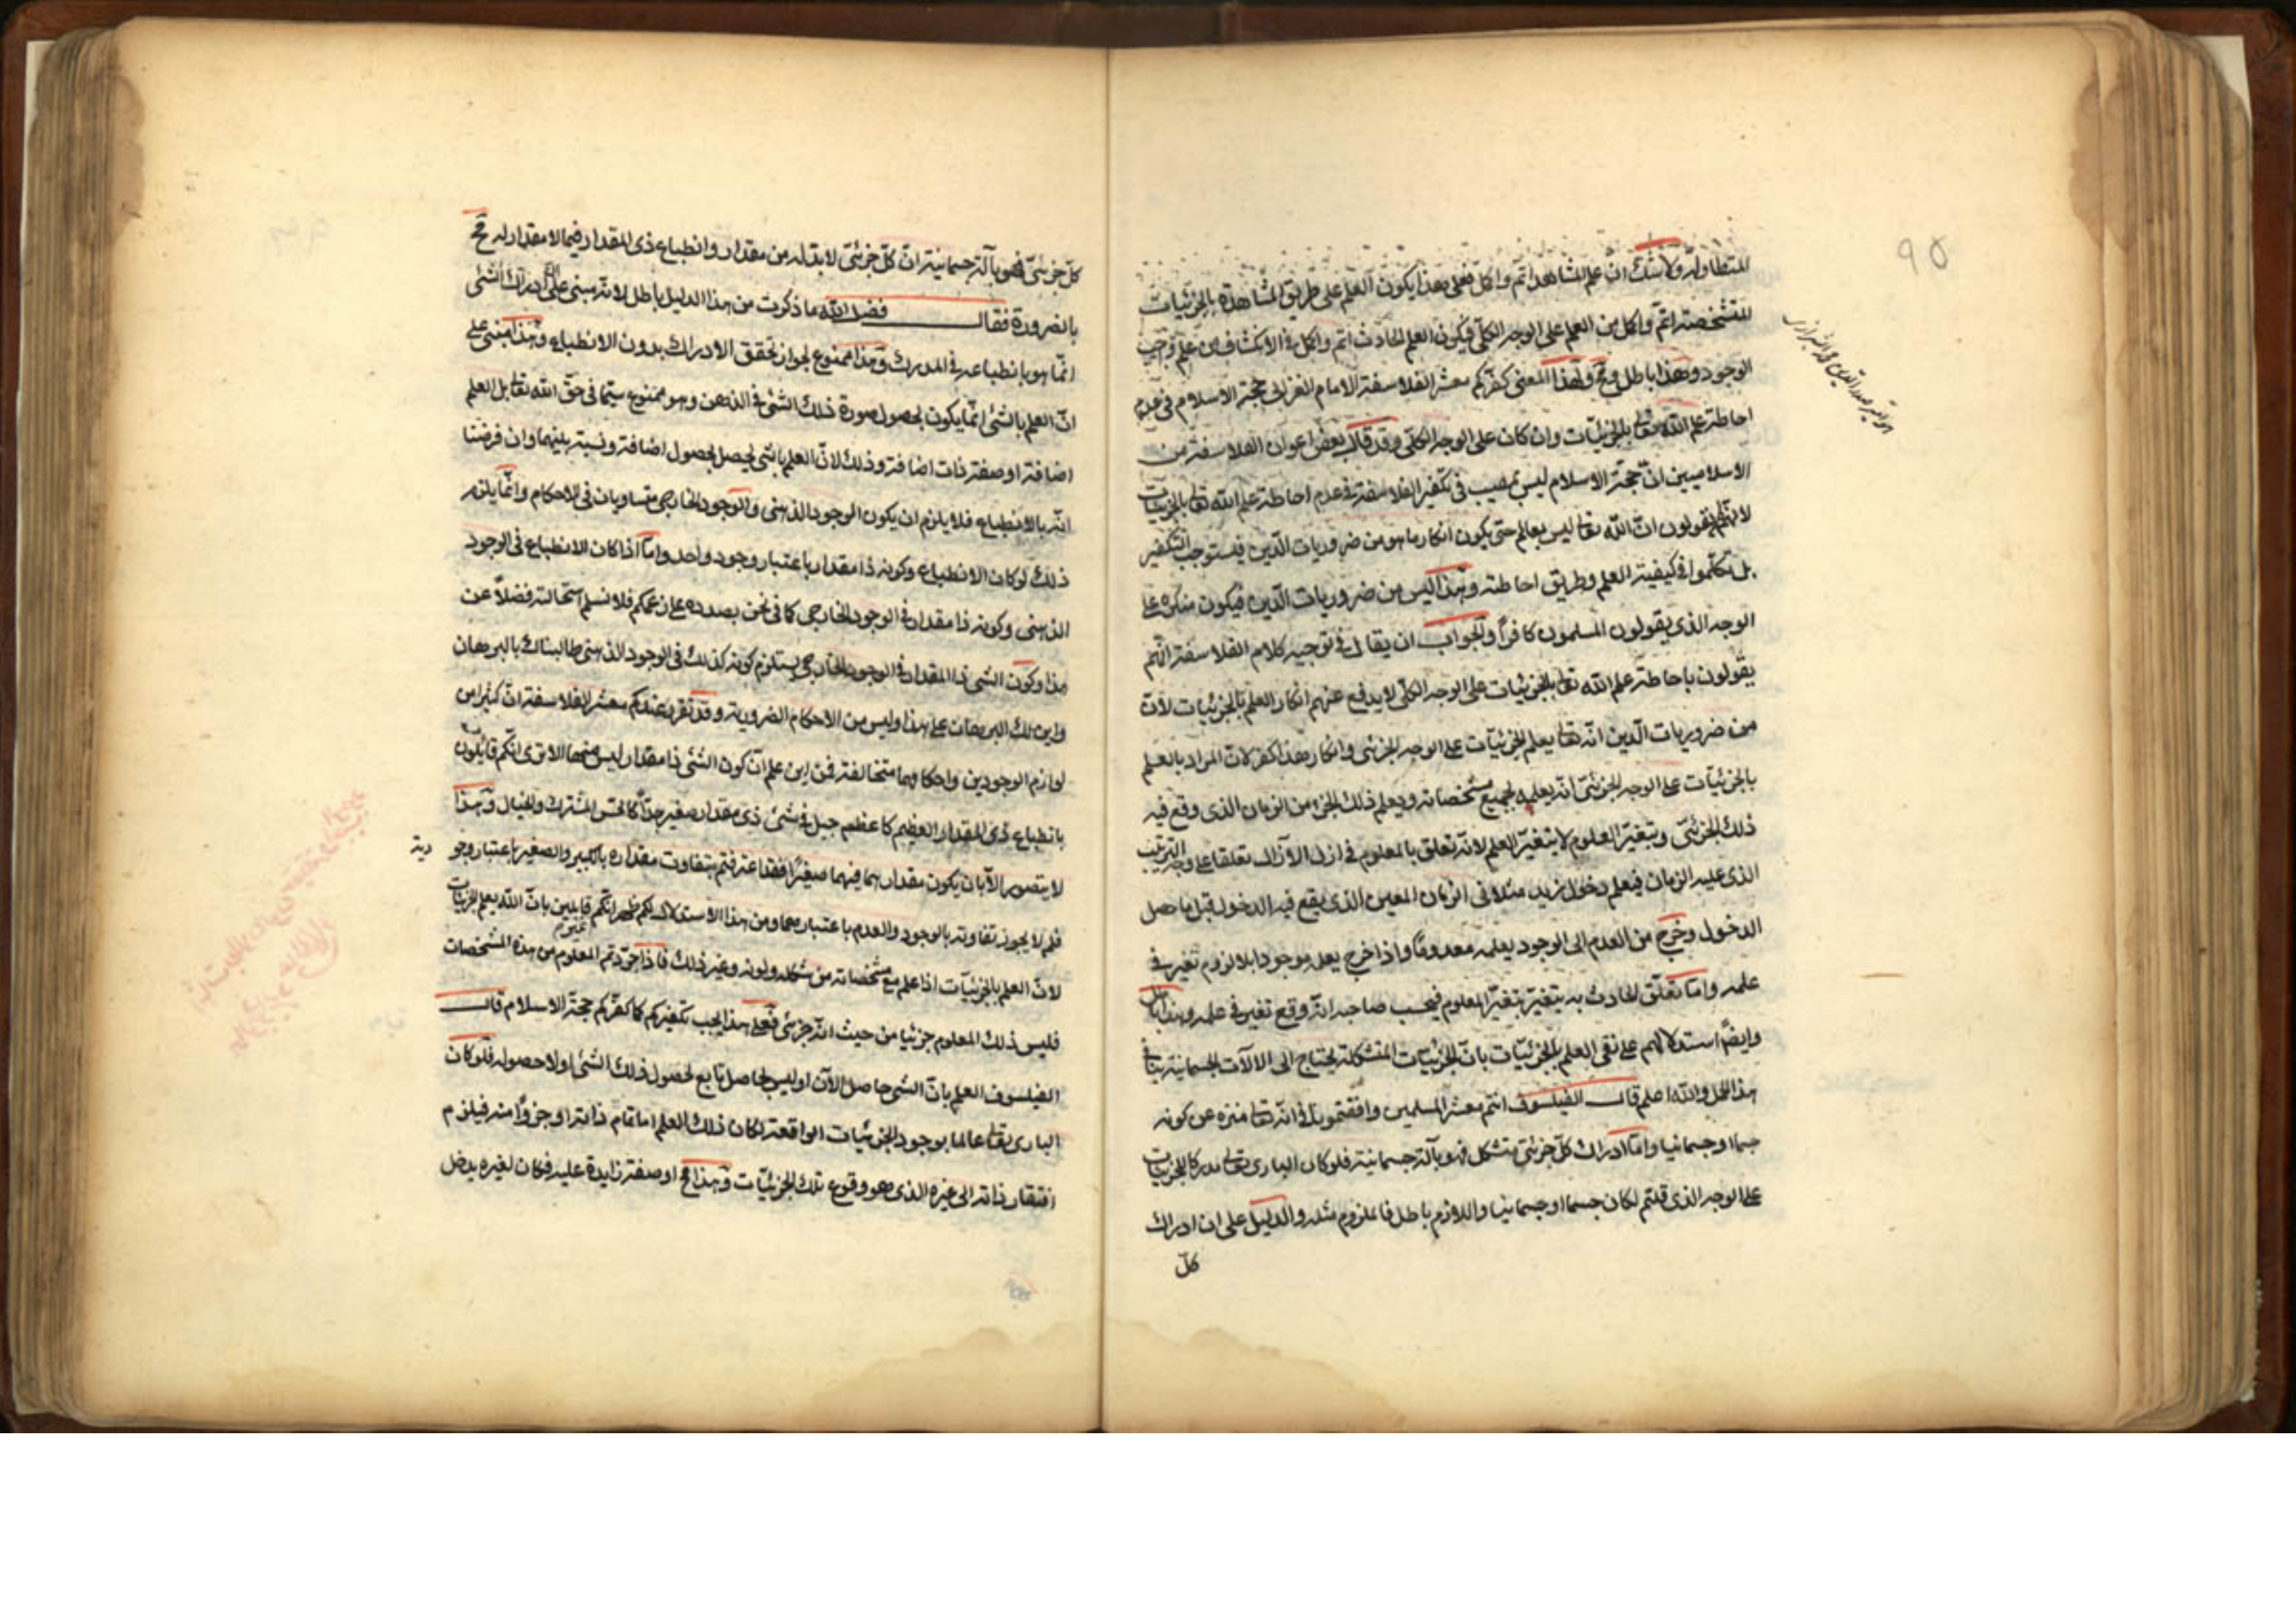 ٩٥
المتطاولة ولا شك ان علم المشاهد اتم واكمل فعلى هذا يكون العلم على طريق المشاهدة بالجزئيات
المتشخصة اتم واكمل من العلم على الوجه الكلى فيكون العلم الحادث اتم واكمل فى الانكشاف من علم واجب
الوجود وهذا باطل ولهذا المعنى كفركم معشر الفلاسفة الامام الغزالى حجة الاسلام فى عدم
احاطة علم الله تعا بالجزئيات وان كان على الوجه الكلى وقد قال بعض اعوان الفلاسفة من
الاسلاميين ان حجة الاسلام ليس بمصيب فى تكفير الفلاسفة فى عدم احاطة علم الله تعا بالجزئيات
لانهم لا يقولون ان الله تعا ليس بعالم حتى يكون انكار ما هو من ضروريات الدين فيستوجب التكفير
بل تكلموا فى كيفية العلم وطريق احاطته وهذا ليس من ضروريات الدين فيكون منكره على
الوجه الذى يقولون المسلمون كافراً والجواب ان يقال فى توجيه كلام الفلاسفة انهم
يقولون باحاطة علم الله تعا بالجزئيات على الوجه الكلى لا يدفع عنهم انكار العلم بالجزئيات لان
من ضروريات الدين انه تعا يعلم الجزئيات على الوجه الجزئى وانكار هذا كفر لان المراد بالعلم
بالجزئيات على الوجه الجزئى انه يعلمه بجميع مشخصاته ويعلم ذلك الجزء من الزمان الذى وقع فيه
ذلك الجزئى وبتغير المعلوم لا يتغير العلم لانه تعلق بالمعلوم فى ازل الآزال تعلقا على وجه الترتيب
الذى عليه الزمان فيعلم دخول زيد مثلا فى الزمان المعين الذى يقع فيه الدخول قبل ما حصل
الدخول وخرج من العدم الى الوجود يعلمه معدوماً واذا خرج يعلمه موجودا بلا لزوم تغير فى
علمه واما تعلق الحادث به يتغير بتغير المعلوم فيحسب صاحبه انه وقع تغير فى علمه وهذا باطل
وايضاً استدلالهم على نفى العلم بالجزئيات بان الجزئيات المتشكلة يحتاج الى الالات الجسمانية
هذا المحل والله اعلم قال الفيلسوف انتم معشر المسلمين وافقتمونا فى انه تعا منزه عن كونه
جسما او جسمانيا واما ادراك كل جزئى متشكل فهو بآلة جسمانية فلو كان البارى تعا مدركا للجزئيات
على الوجه الذى قلتم لكان جسما او جسمانيا واللازم باطل فالملزوم مثله والدليل على ان ادراك
كل
كل جزئى فهو بآلة جسمانية ان كل جزئى لا بد له من مقدار وانطباع ذى المقدار فيما لا مقدار له مح
بالضرورة فقال فضل الله ما ذكرت من هذا الدليل باطل لانه مبنى على ان ادراك الشئ
انما هو بانطباعه فى المدرك وهذا ممنوع لجواز تحقق الادراك بدون الانطباع وهذا مبنى على
ان العلم بالشئ انما يكون بحصول صورة ذلك الشئ فى الذهن وهو ممنوع سيما فى حق الله تعا بل العلم
اضافة او صفة ذات اضافة وذلك لان العلم بالشئ يحصل بحصول اضافة ونسبة بينهما وان فرضنا
انه بالانطباع فلا يلزم ان يكون الوجود الذهنى والوجود الخارجى متساويان فى الاحكام وانما يلزم
ذلك لو كان الانطباع وكونه ذا مقدار باعتبار وجود واحد واما اذا كان الانطباع فى الوجود
الذهنى وكونه ذا مقدار فى الوجود الخارجى كما فى نحن بصدده على زعمكم فلا نسلم استحالته فضلاً عن
هذا وكون الشئ ذا المقدار فى الوجود الخارجى يستلزم كونه كذلك فى الوجود الذهنى طالبناك بالبرهان
واين لك البرهان على هذا وليس من الاحكام الضرورية وقد تقرر عندكم معشر الفلاسفة ان كثيرا من
لوازم الوجودين واحكامهما متخالفة فمن اين علم ان كون الشئ ذا مقدار ليس منها الا ترى انكم قائلون
بانطباع ذى المقدار العظيم كاعظم جبل فى شئ ذى مقدار صغير جداً كالحس المشترك والخيال وهذا
لا يتصور الا بان يكون مقدارهما فيهما صغيراً فقد اعترفتم بتفاوت مقداره بالكبير والصغير باعتبار وجو
ديه
فلم لا يجوز تفاوته بالوجود والعدم باعتبارهما ومن هذا الاستدلال لكم ظهر انكم قايلين بان الله يعلم الجزئيات
لان العلم بالجزئيات اذا علم مع مشخصاته من شكله ولونه وغير ذلك فاذا جردتم المعلوم من هذه المشخصات
فليس ذلك المعلوم جزئيا من حيث انه جزئى فعلى هذا يجب تكفيركم كما كفركم حجة الاسلام قال
الفيلسوف العلم بان الشئ حاصل الآن او ليس بحاصل تابع لحصول ذلك الشئ او لا حصوله فلو كان
البارى تعا عالما بوجود الجزئيات الواقعة لكان ذلك العلم اما تمام ذاته او جزؤاً منه فيلزم
افتقار ذاته الى غيره الذى هو وقوع تلك الجزئيات وهذا مح او صفة زايدة عليه فكان لغيره يدخل